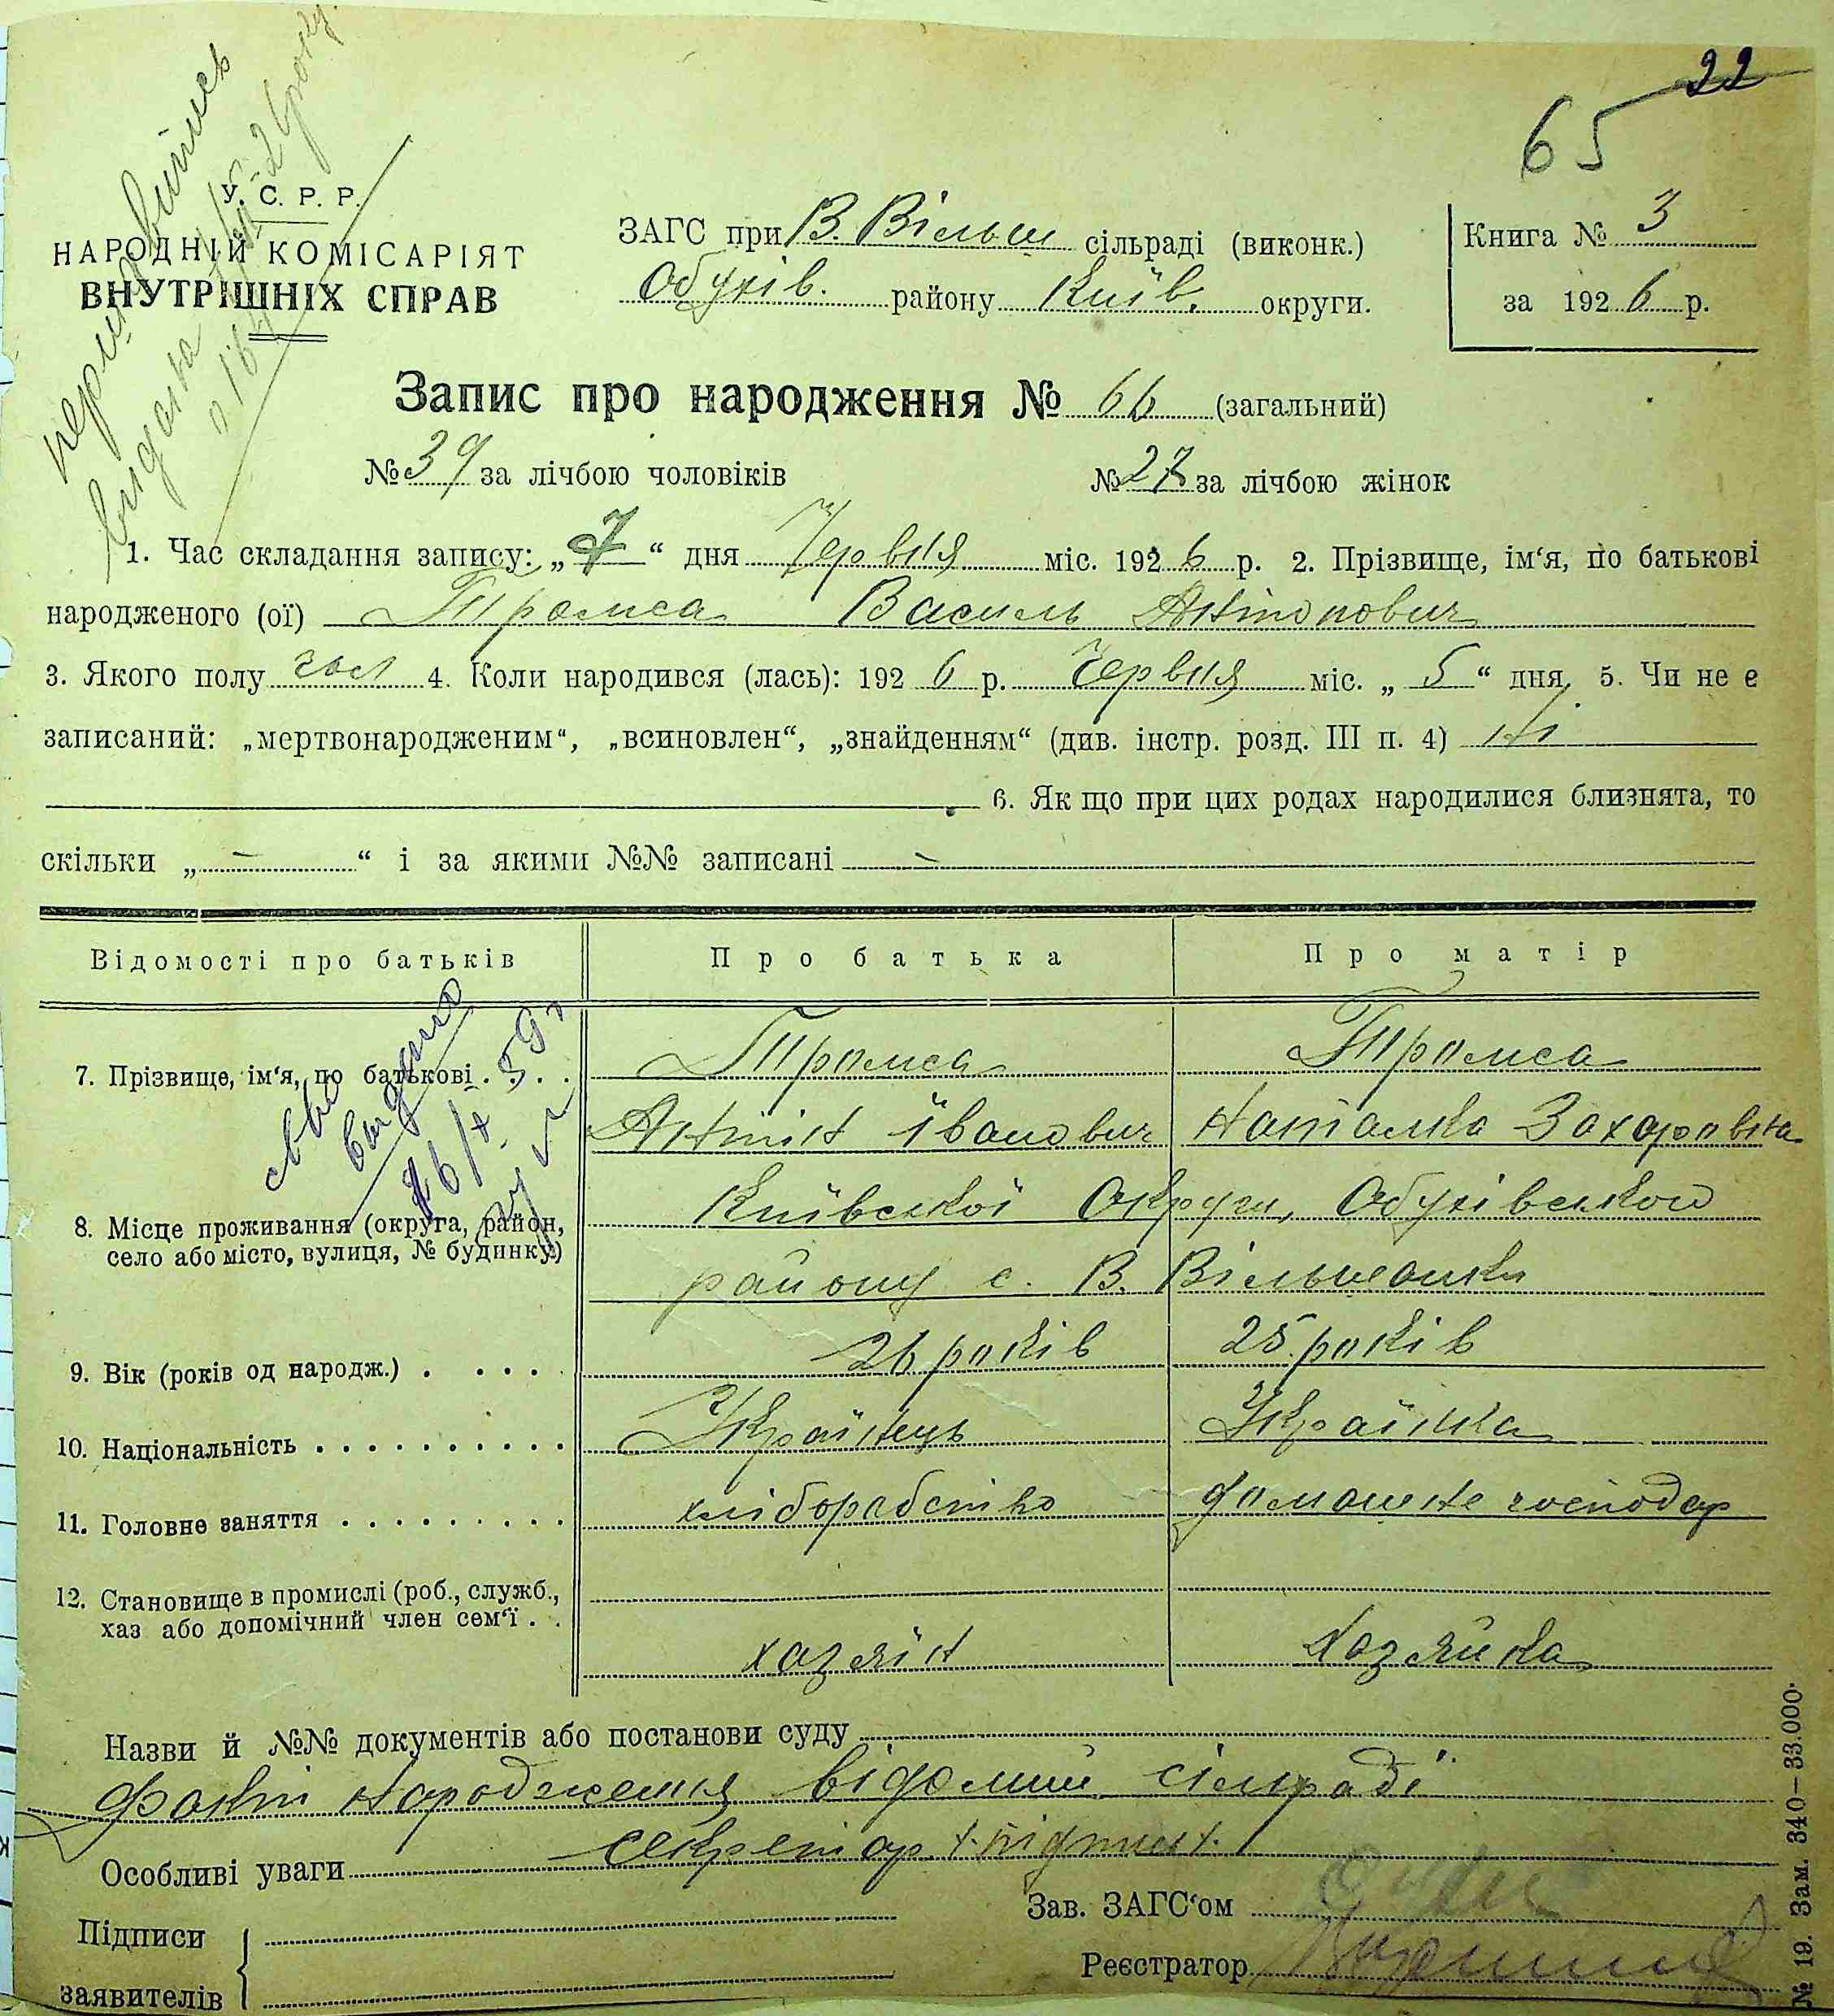 22
65
У. С. Р. Р.
НАРОДНІЙ КОМІСАРІЯТ
ВНУТРІШНІХ СПРАВ
ЗАГС при В. Вільш сільраді (виконк.)
Обухів. району Київ. округи.
Книга № 3
за 1926 р.
Запис про народження № 66 (загальний)
№ 39 за лічбою чоловіків № 27 за лічбою жінок
1. Час складання запису: „7“ дня Червня міс. 1926 р. 2. Прізвище, ім‘я, по батькові
народженого (ої) Василь Антонович
3. Якого полу чол 4. Коли народився (лась): 1926 р. Червня міс. „5“ дня. 5. Чи не є
записаний: „мертвонародженим“, „всиновлен“, „знайденням“ (див. інстр. розд. III п. 4) ні
6. Як що при цих родах народилися близнята, то
скільки „—“ і за якими №№ записані —
Відомості про батьків Про батька Про матір
7. Прізвище, ім‘я, по батькові . . . .
Іванович Наталка Захаровна
8. Місце проживання (округа, район,
село або місто, вулиця, № будинку)
Київської Округи, Обухівського
району с. В. Вільшанки
9. Вік (років од народж.) . . . . 26 років 25 років
10. Національність . . . . . . . . . . Українець Українка
11. Головне заняття . . . . . . . . . хліборобство домашнє господар
12. Становище в промислі (роб., служб.,
хаз або допомічний член сем‘ї . .
хазяїн хазяйка
видано
Назви й №№ документів або постанови суду
Факт народження відомий сільраді
Особливі уваги секретар
Підписи
заявителів
Зав. ЗАГС‘ом
Реєстратор
№ 19. Зам. 340—33.000.